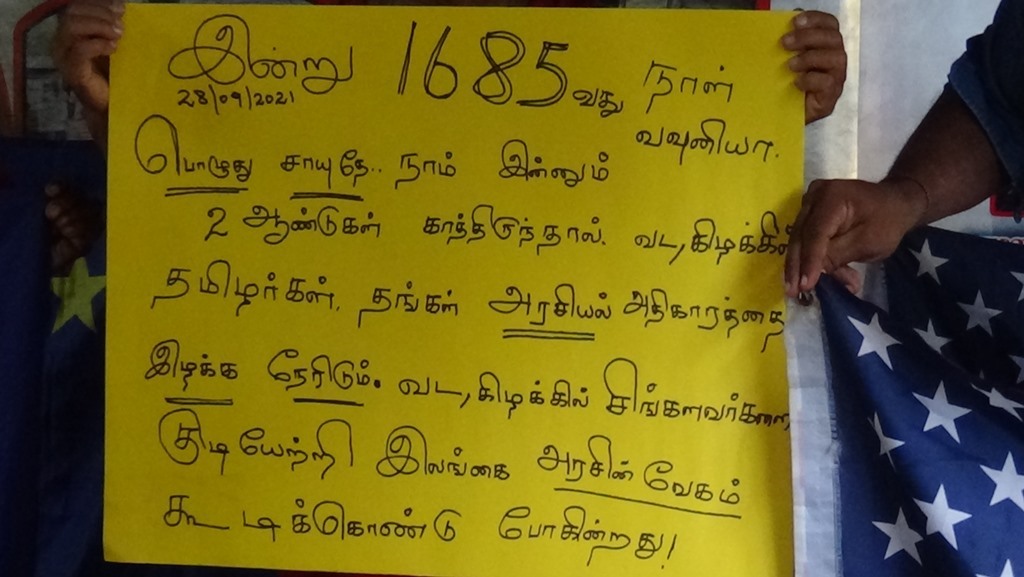 இன்று 1685வது நாள்
28/09/2021 வவுனியா.
பொழுது சாயுதே.. நாம் இன்னும்
2 ஆண்டுகள் காத்திருந்தால். வட,கிழக்கின்
தமிழர்கள். தங்கள் அரசியல் அதிகாரத்தை
இழக்க நேரிடும். வட,கிழக்கில் சிங்களவர்களை
குடியேற்றி இலங்கை அரசின் வேகம்
கூடிக்கொண்டு போகின்றது!